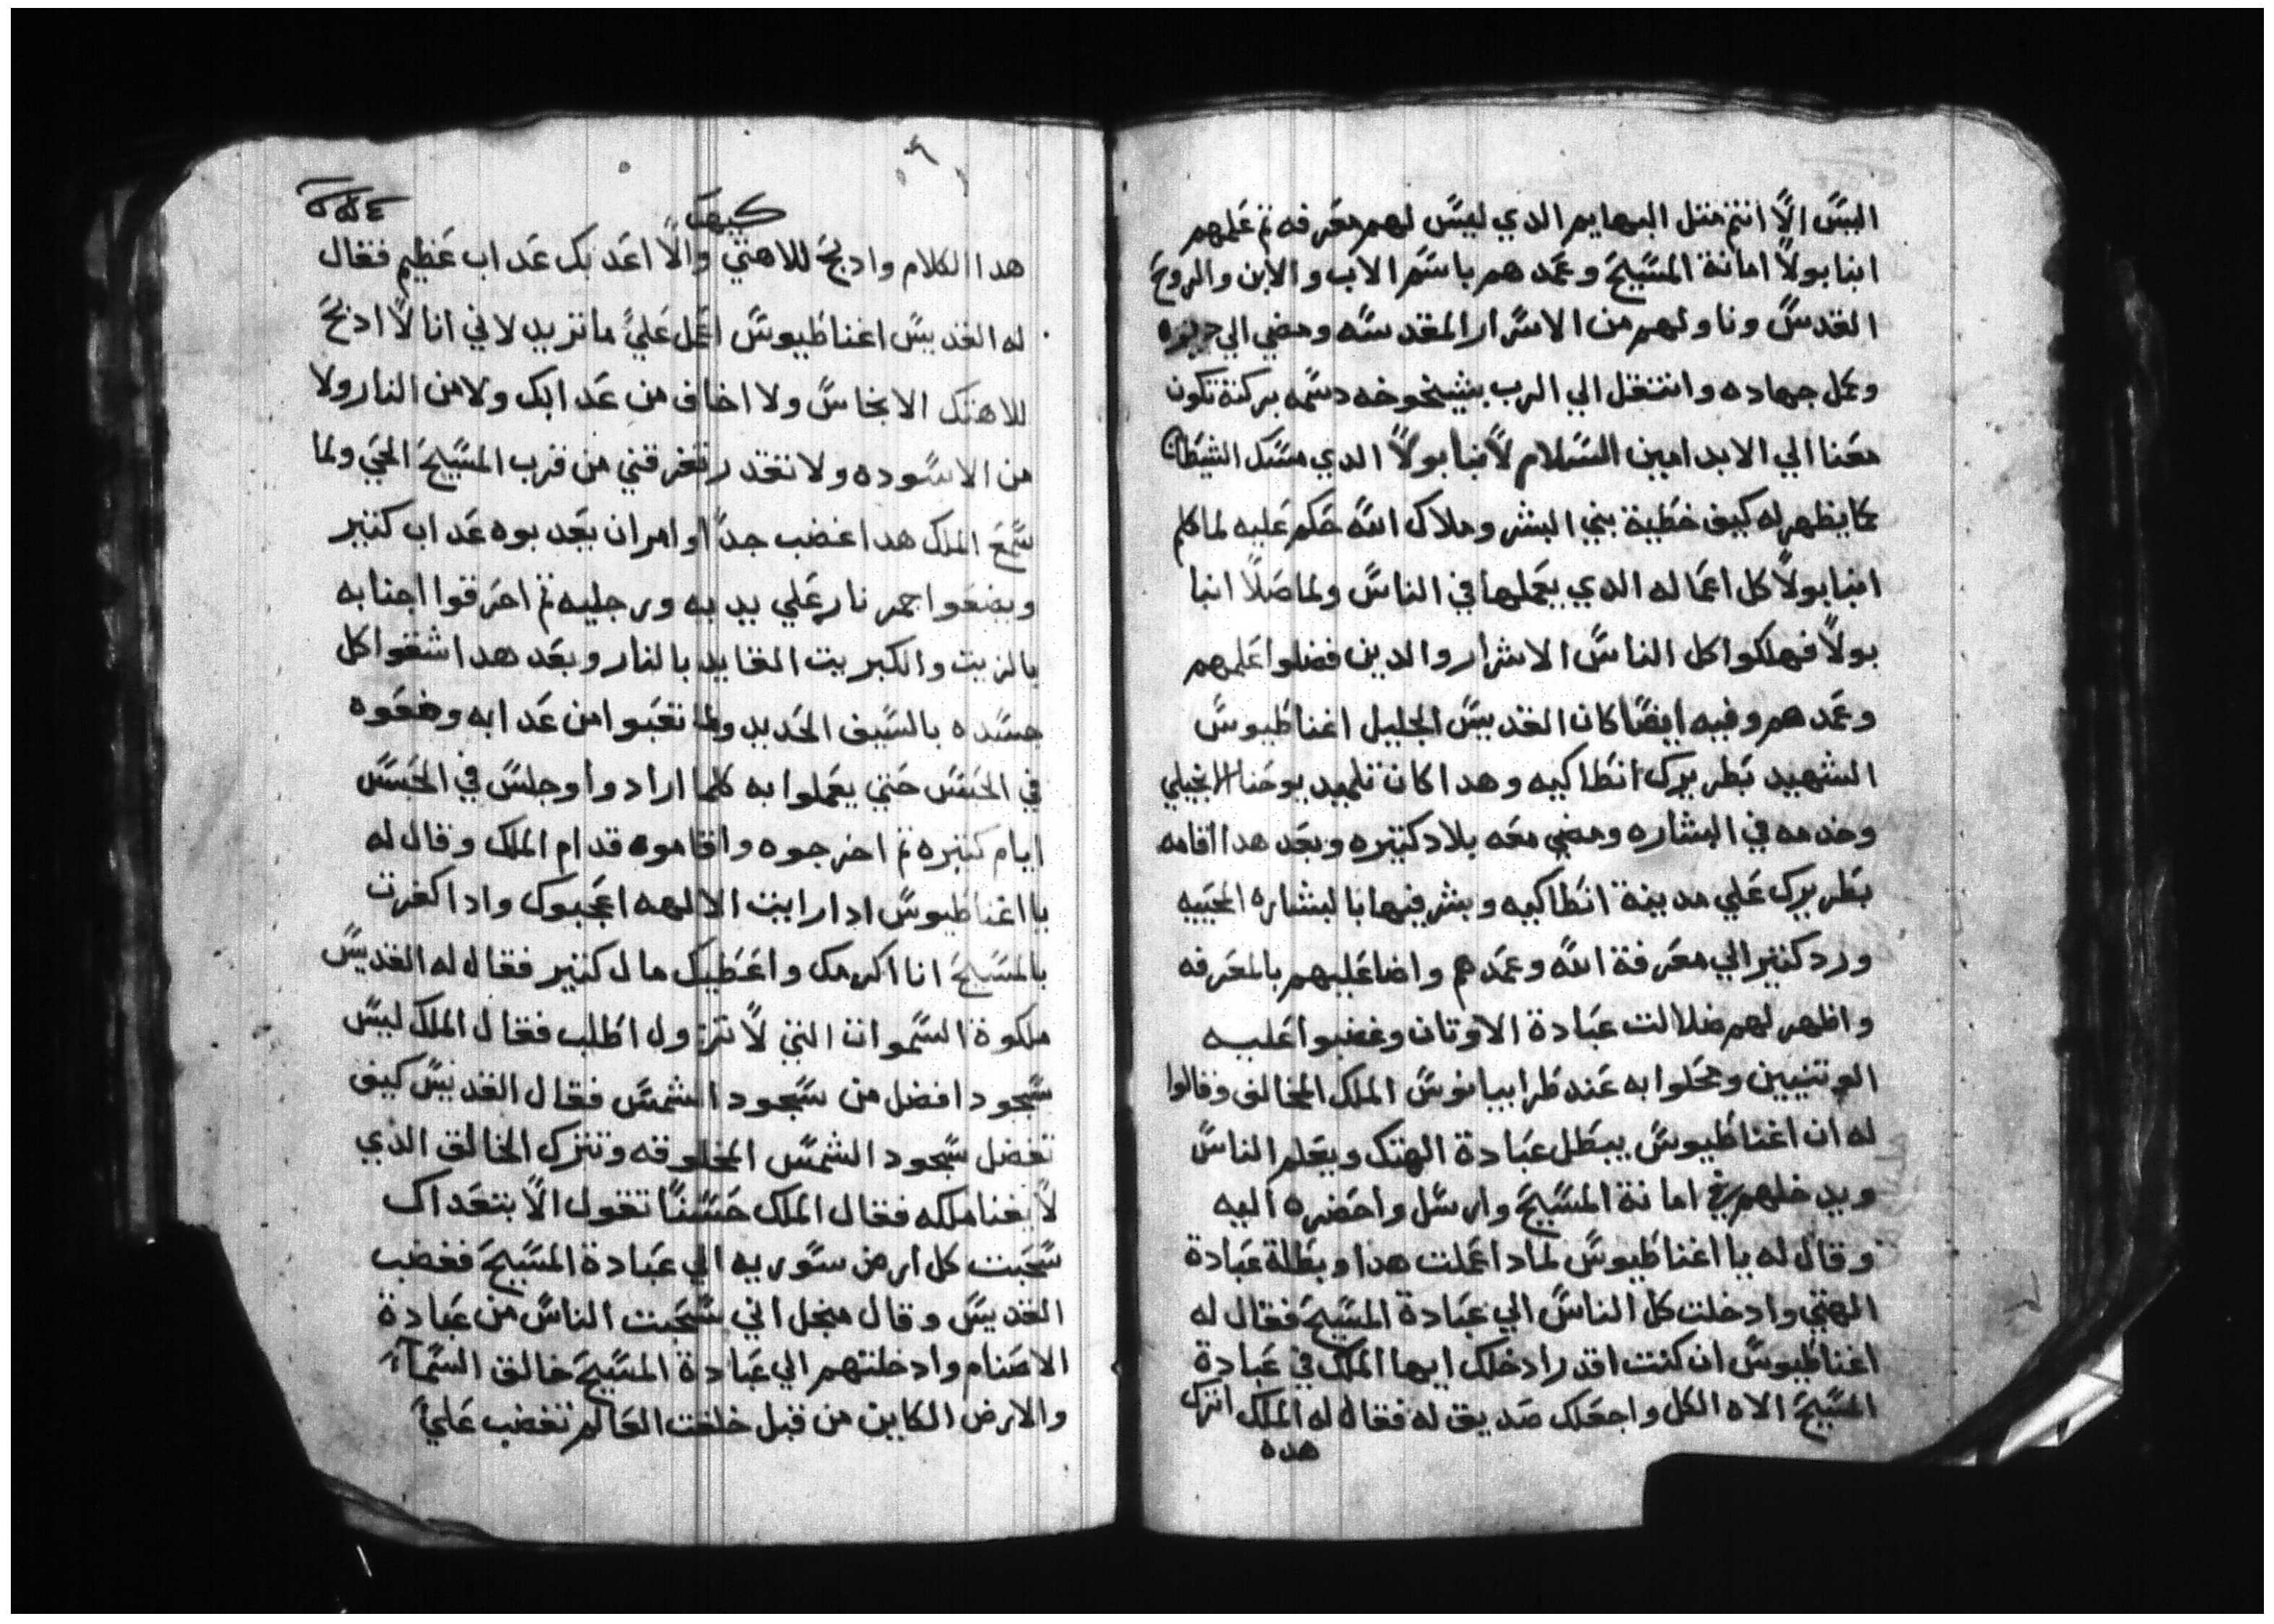 البس الا انتم متل البهايم الدي ليس لهم معرفه تم علمهم
انبا بولا امانة المسيح وعمدهم باسم الاب والابن والروح
القدس وناولهم من الاسرار المقدسه ومضي الي ديره
وكمل جهاده وانتقل الي الرب بشيخوخه دسمه بركته تكون
معنا الي الابد امين السلام لانبا بولا الدي مسك الشيطان
كما يظهر له كيف خطية بني البشر وملاك الله حكم عليه لما كلم
انبا بولا كل اعماله الدي يعملها في الناس ولما صلا انبا
بولا فهلكوا كل الناس الاشرار والدين فضلوا علمهم
وعمدهم وفيه ايضا كان القديس الجليل اغناطيوس
الشهيد بطريرك انطاكيه وهدا كان تلميد يوحنا الانجيلي
وخدمه في البشاره ومضي معه بلاد كتيره وبعد هدا اقامه
بطريرك علي مدينة انطاكيه وبشر فيها بالبشاره المحييه
ورد كتير الي معرفة الله وعمدهم واضا عليهم بالمعرفه
واظهر لهم ضلالت عبادة الاوتان وغضبوا عليه
الوتنيين ومحلوا به عند طرابيانوس الملك المخالف وقالوا
له ان اغناطيوس يبطل عبادة الهتك ويعلم الناس
ويدخلهم في امانة المسيح وارسل واحضره اليه
وقال له يا اغناطيوس لمادا عملت هدا وبطلة عبادة
الهتي وادخلت كل الناس الي عبادة المسيح فقال له
اغناطيوس ان كنت اقدر ادخلك ايها الملك في عبادة
المسيح الاه الكل واجعلك صديق له فقال له الملك اترك
هده
كيهك
هدا الكلام وادبح للاهتي والا اعدبك عداب عظيم فقال
له القديس اغناطيوس اعمل علي ما تريد لاني انا لا ادبح
للاهتك الانجاس ولا اخاف من عدابك ولا من النار ولا
من الاسوده ولا تقدر تفرقني من قرب المسيح الحي ولما
سمع الملك هدا غضب جدا وامر ان يعدبوه عداب كتير
ويضعوا جمر نار علي يديه ورجليه تم احرقوا اجنابه
بالزيت والكبريت القايد بالنار وبعد هدا شقوا كل
جسده بالسيف الحديد ولما تعبوا من عدابه وضعوه
في الحبس حتي يعملوا به كلما ارادوا وجلس في الحبس
ايام كتيره تم اخرجوه واقاموه قدام الملك وقال له
يا اغناطيوس ادا رايت الالهه اعجبوك وادا كفرت
بالمسيح انا اكرمك واعطيك مال كتير فقال له القديس
ملكوة السموات التي لا تزول اطلب فقال الملك ليس
سجود افضل من سجود الشمس فقال القديس كيف
تفضل سجود الشمس المخلوقه وتترك الخالق الدي
لا يفنا ملكه فقال الملك حسنا تقول الا بتعداك
سحبت كل ارض سوريه الي عبادة المسيح فغضب
القديس وقال منجل اني سحبت الناس من عبادة
الاصنام وادخلتهم الي عبادة المسيح خالق السماء
والارض الكاين من قبل خلقت العالم تغضب علي